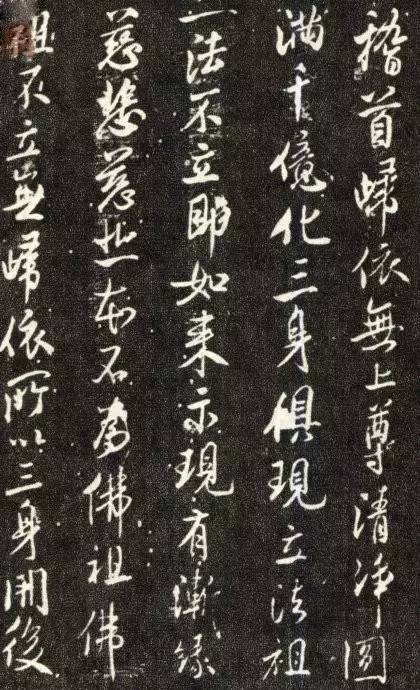 稽首歸依無上尊清淨圓
滿千億化三身俱現立法祖
一法不立即如来示現有漸緣
慈本不為佛祖佛
祖不立無歸依所以三身開後